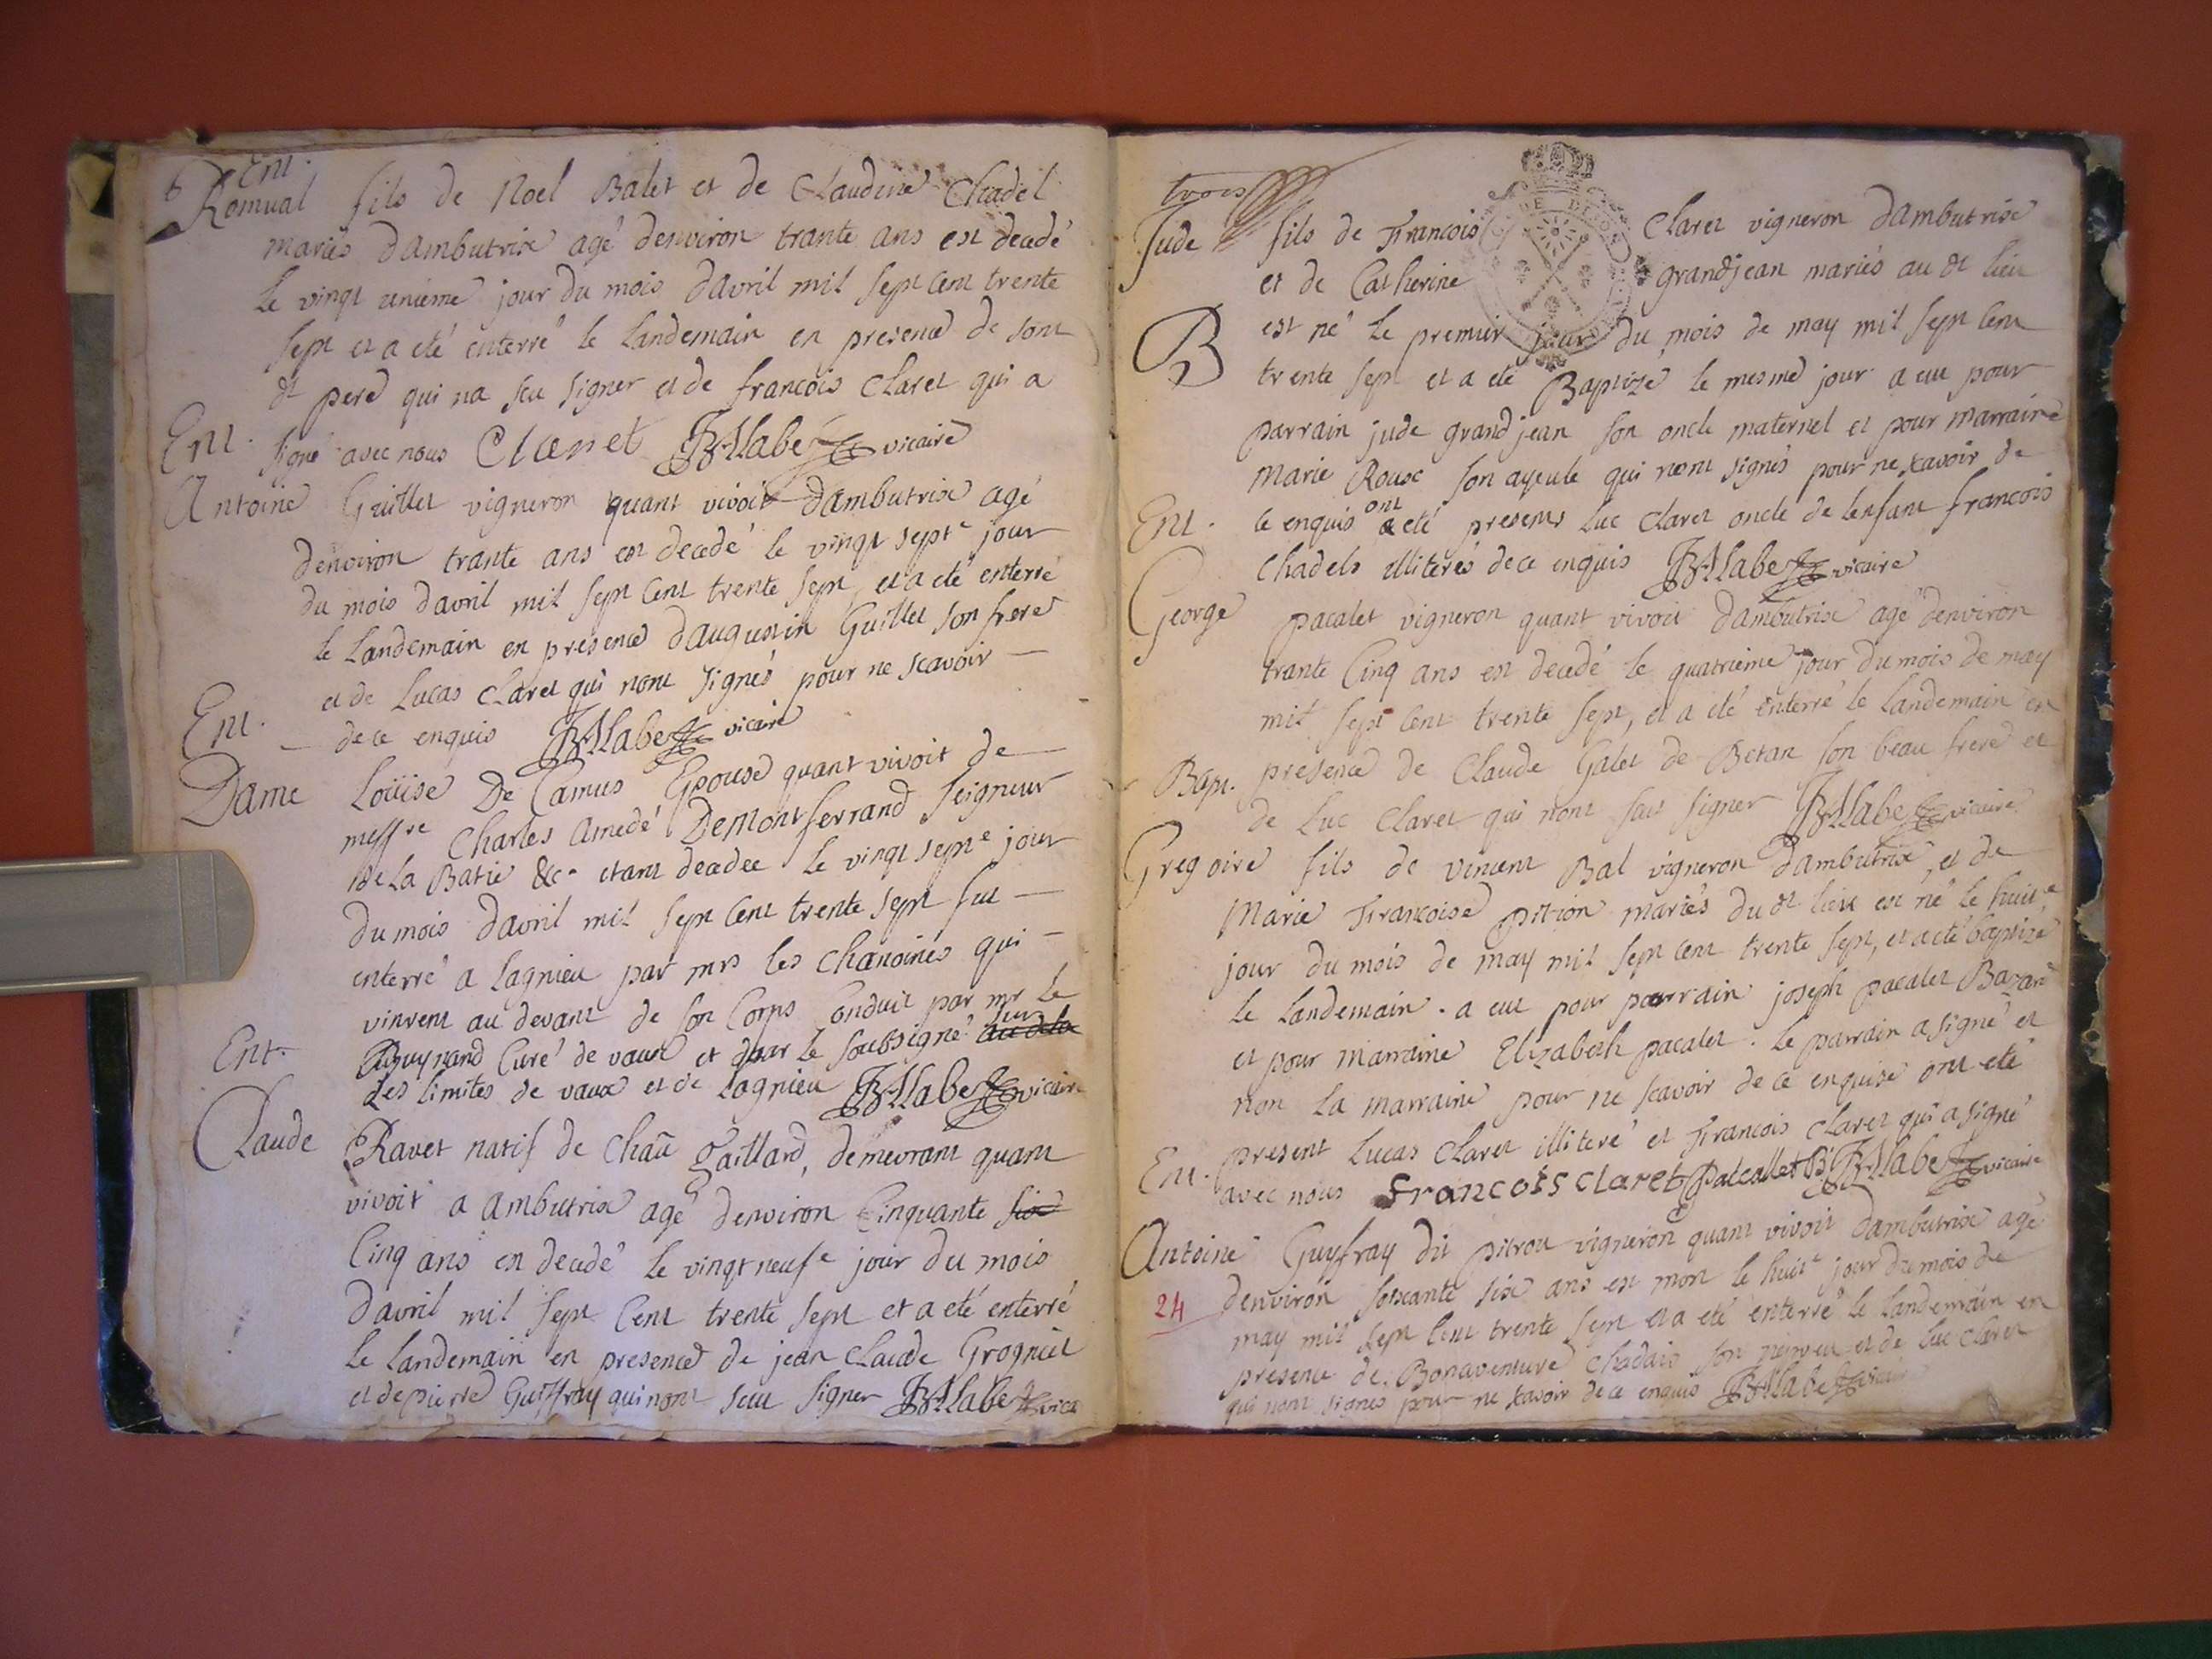 Ent.
Romual fils de Noel Balet et de Claudine Chadel
mariés d'ambutrix agé denviron trante ans est decedé
le vingt unieme jour du mois davril mil sept cent trente
sept et a eté enterré le landemain en presence de sont
dt pere qui na sceu signer et de francois Claret qui a
Ent. signé avec nous Claret Labe vicaire
Antoine Guillet vigneron quant vivoit d'ambutrix agé
denviron trante ans est decedé le vingt septe jour
du mois davril mil sept cent trente sept, et a eté enterré
le landemain en presence daugustin Guillet son frere
et de Lucas Claret qui nont signés pour ne scavoir
Ent. de ce enquis Labe vicaire
Dame Loüise De Camus Epouse quant vivoit de
messre Charles Amedé Demontferrand seigneur
de La Batie &c. etant decedee le vingt septe jour
du mois davril mil sept cent trente sept fut
enterré a lagnieu par mrs les chanoines qui
vinrent au devant de son Corps Conduit par mr le
Curé de vaux et par le soubsigné sur au dela
Ent. des limites de vaux et de lagnieu Labe vicaire
Claude Ravet natif de Chaū gaillard, demeurant quant
vivoit a ambutrix agé denviron Cinquante six
Cinq ans est decedé le vingt neufe jour du mois
davril mil sept Cent trente sept et a eté enterré
le landemain en presence de jean Claude Grogniet
et de pierre Guiffray qui nont sceu signer Labe vica
trois
Jude fils de Francois Claret vigneron dambutrix
et de Catherine grandjean mariés au dt lieu
B est né le premier jour du mois de may mil sept cent
trente sept et a eté Baptizé le mesme jour a eu pour
parrain jude grand jean son oncle maternel et pour marraine
Marie Roux son ayeule qui nont signés pour ne scavoir de
Ent. ce enquis ont eté presents Luc Claret oncle de lenfant francois
Chadels illiterés de ce enquis Labe vicaire
George pacalet vigneron quant vivoit dambutrix agé denviron
trante Cinq ans est decedé le quatrieme jour du mois de may
mil sept cent trente sept, et a eté enterré le landemain en
Bapt. presence de Claude Galet de Betan son beau frere et
de Luc Claret qui nont sceu signer Labe vicaire
Gregoire fils de vincent Bal vigneron dambutrix, et de
Marie Francoise pition mariés du dt lieu est né le huite
jour du mois de may mil sept cent trente sept, et a eté baptizé
le landemain. a eut pour parrain joseph pacalet
et pour marraine Elizabeth pacalet. le parrain a signé et
non la marraine pour ne scavoir de ce enquise ont eté
present Lucas Claret illiteré et Francois Claret qui a signé
Ent. avec nous Francois claret Patcallet Labe vicaire
Antoine Guyfray dit pitrou vigneron quant vivoit dambutrix agé
24 denviron soixante six ans est mort le huite jour du mois de
may mil sept cent trente sept et a eté enterré le landemain en
presence de Bonaventure Chadais son neveu et de Luc Claret
qui nont signés pour ne scavoir de ce enquis Labe vicaire